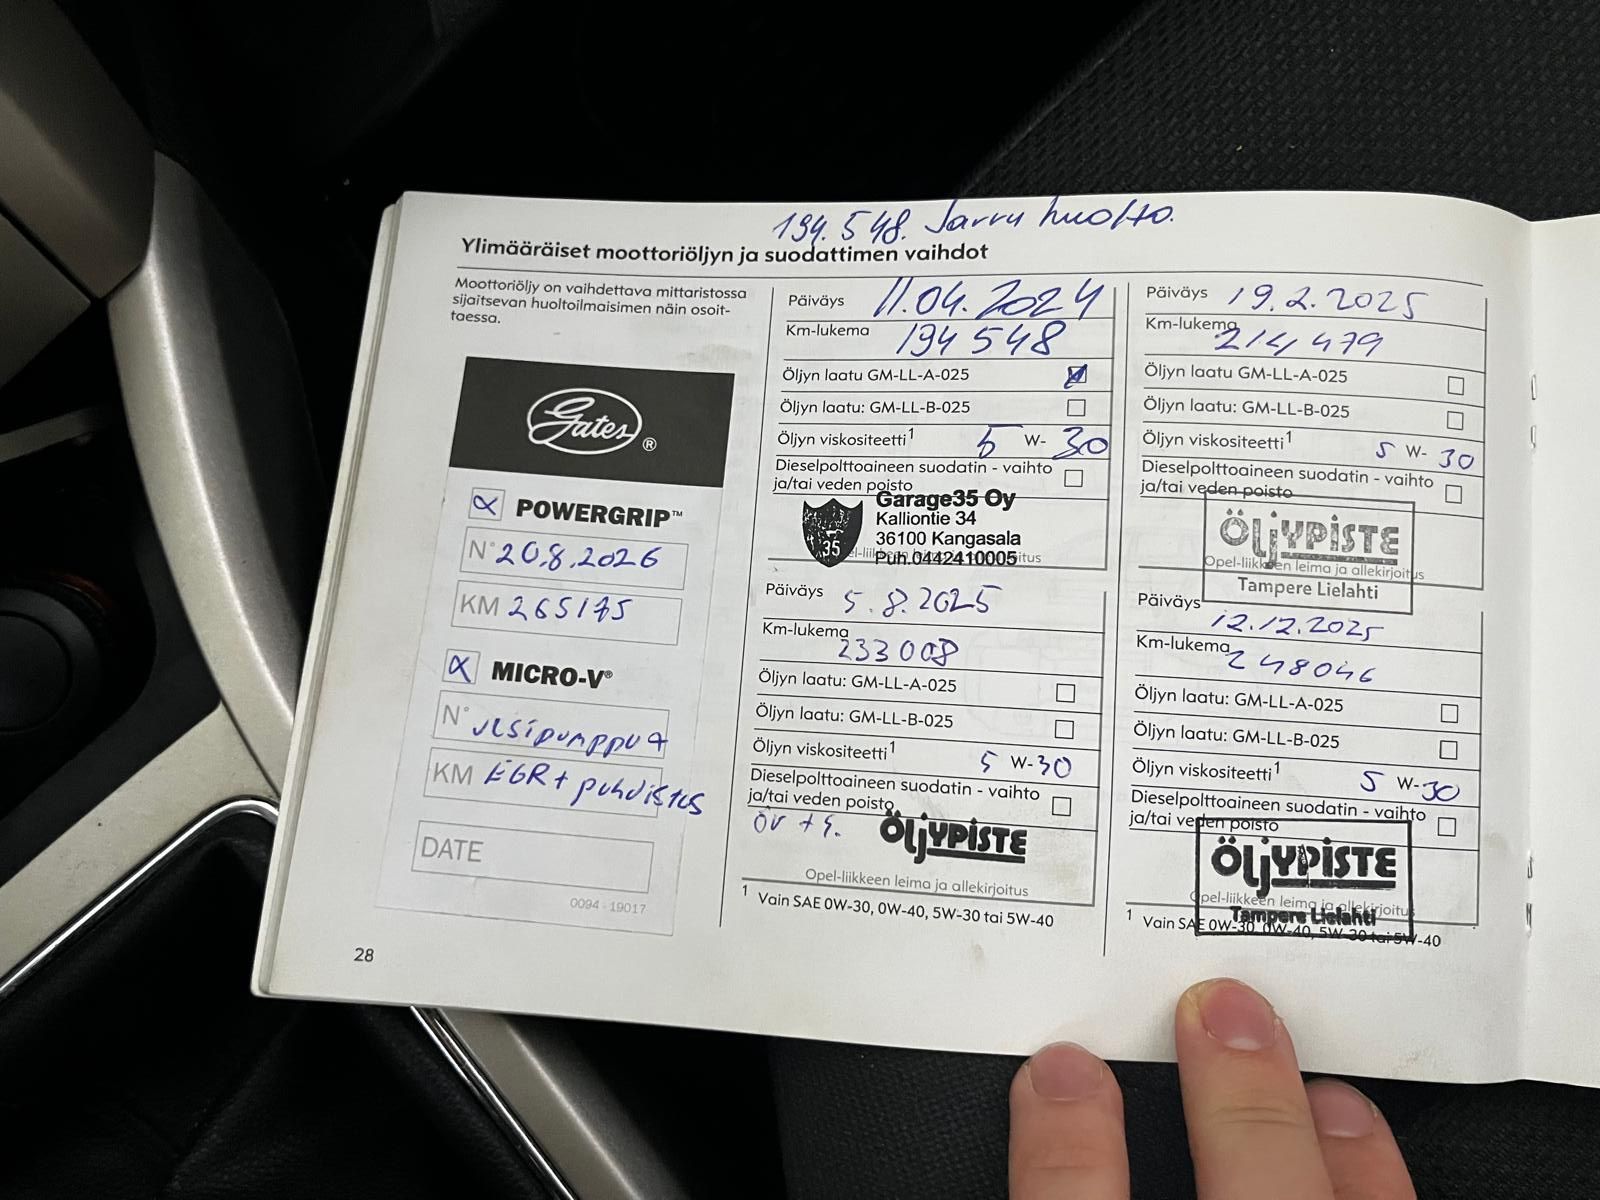 194.548. Jarru huolto.
Ylimääräiset moottoriöljyn ja suodattimen vaihdot
Moottoriöljy on vaihdettava mittaristossa
sijaitsevan huoltoilmaisimen näin osoit-
taessa.
Gates ®
POWERGRIP™
N° 20.8.2026
KM 265175
MICRO-V®
N° vesipumppu
KM EGR + puhdistus
DATE
0094 - 19017
28
Päiväys 11.04.2024
Km-lukema 194 548
Öljyn laatu GM-LL-A-025
Öljyn laatu: GM-LL-B-025
Öljyn viskositeetti¹ 5 W- 30
Dieselpolttoaineen suodatin - vaihto
ja/tai veden poisto
Garage35 Oy
Kalliontie 34
36100 Kangasala
Puh.0442410005
35
Päiväys 5.8.2025
Km-lukema 233008
Öljyn laatu: GM-LL-A-025
Öljyn laatu: GM-LL-B-025
Öljyn viskositeetti¹ 5 W-30
Dieselpolttoaineen suodatin - vaihto
ja/tai veden poisto
ÖV + S.
ÖLJYPISTE
Opel-liikkeen leima ja allekirjoitus
¹ Vain SAE 0W-30, 0W-40, 5W-30 tai 5W-40
Päiväys 19.2.2025
Km-lukema 214479
Öljyn laatu GM-LL-A-025
Öljyn laatu: GM-LL-B-025
Öljyn viskositeetti¹ 5 W- 30
Dieselpolttoaineen suodatin - vaihto
ja/tai veden poisto
ÖLJYPISTE
Opel-liikkeen leima ja allekirjoitus
Tampere Lielahti
Päiväys 12.12.2025
Km-lukema 248046
Öljyn laatu: GM-LL-A-025
Öljyn laatu: GM-LL-B-025
Öljyn viskositeetti¹ 5 W-30
Dieselpolttoaineen suodatin - vaihto
ja/tai veden poisto
ÖLJYPISTE
Opel-liikkeen leima ja allekirjoitus
Tampere Lielahti
¹ Vain SAE 0W-30, 0W-40, 5W-30 tai 5W-40